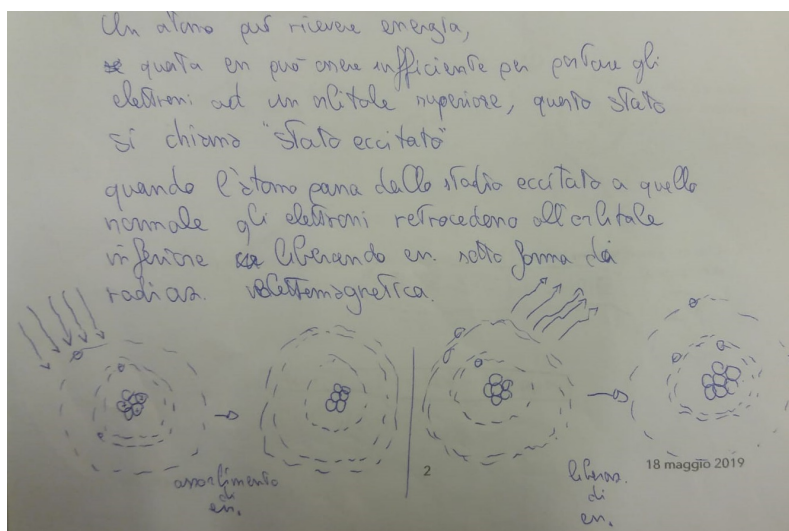 Un atomo può ricevere energia,
questa en può essere sufficiente per portare gli
elettroni ad un orbitale superiore, questo stato
si chiama "stato eccitato"
quando l'atomo passa dallo stadio eccitato a quello
normale gli elettroni retrocedono all'orbitale
inferiore liberando en. sotto forma di
radiaz. elettromagnetica.
assorbimento
di
en.
2
liberaz.
di
en.
18 maggio 2019